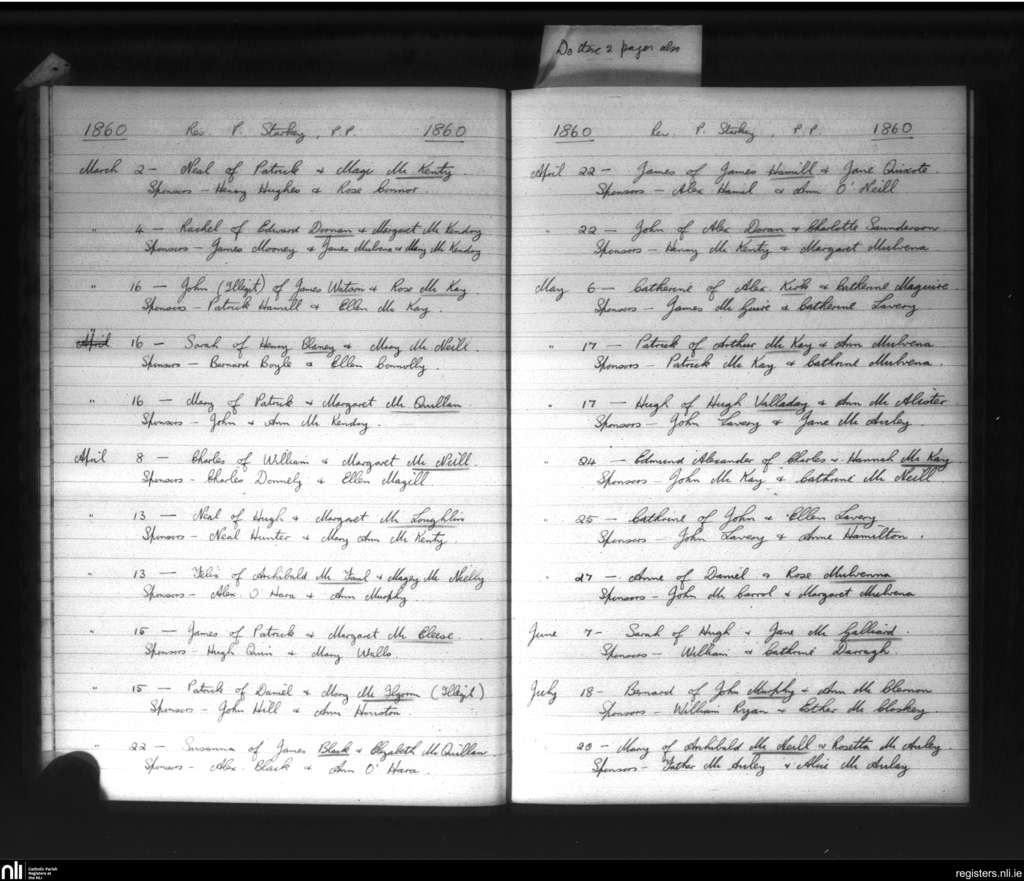 Do these 2 pages also
1860 Rev. P. Starkey, P.P. 1860
March 2 - Neal of Patrick & Mage Mc Kenty
Sponsors - Henry Hughes & Rose Connor
" 4 - Rachel of Edward Doonan & Margaret Mc Kendry
Sponsors - James Mooney & James Mulvena & Mary Mc Kendry
" 16 - John (Illegit) of James Watson & Rose Mc Kay
Sponsors - Patrick Hamill & Ellen Mc Kay.
" April 16 - Sarah of Henry Claney & Mary Mc Neill.
Sponsors - Bernard Boyle & Ellen Connolly.
" 16 - Mary of Patrick & Margaret Mc Quillan
Sponsors - John & Ann Mc Kendry.
April 8 - Charles of William & Margaret Mc Neill.
Sponsors - Charles Donnely & Ellen Magill
" 13 - Neal of Hugh & Margaret Mc Loughlin
Sponsors - Neal Hunter & Mary Ann Mc Kenty.
" 13 - Felix of Archibald Mc Faul & Magey Mc Neilly
Sponsors - Alex. O Hara & Ann Murphy.
" 15 - James of Patrick & Margaret Mc Cleese.
Sponsors - Hugh Quin & Mary Wells.
" 15 - Patrick of Daniel & Mary Mc (Illegit)
Sponsors - John Hill & Ann Houston.
" 22 - Susanna of James Black & Elizabeth Mc Quillan
Sponsors - Alex. Black & Ann O' Hara.
1860 Rev. P. Starkey, P.P. 1860
April 22 - James of James Hamill & Jane Quixote
Sponsors - Alex Hamil & Ann O' Neill
" 22 - John of Alex Davan & Charlotte Saunderson
Sponsors - Henry Mc Kenty & Margaret Mulvena
May 6 - Catherine of Alex. Kirk & Catherine Maguire
Sponsors - James Mc Guire & Catherine Lavery
" 17 - Patrick of Arthur Mc Kay & Ann Mulvena
Sponsors - Patrick Mc Kay & Cathrine Mulvena.
" 17 - Hugh of Hugh Valladay & Ann Mc Alister
Sponsors - John Lavery & Jane Mc Auley.
" 24 - Edmund Alexander of Charles & Hannah Mc Kay
Sponsors - John Mc Kay & Cathrine Mc Neill
" 25 - Cathrine of John & Ellen Lavery
Sponsors - John Lavery & Anne Hamilton.
" 27 - Anne of Daniel & Rose Mulvenna
Sponsors - John Mc Carrol & Margaret Mulvena
June 7 - Sarah of Hugh & Jane Mc Galliard.
Sponsors - William & Cathrine Darragh.
July 18 - Bernard of John Murphy & Ann Mc Clernon
Sponsors - William Ryan & Esther Mc Closkey
20 - Mary of Archibald Mc Neill & Rosetta Mc Auley.
Sponsors - Father Mc Auley & Alice Mc Auley
nli Catholic Parish
Registers at
the NLI
registers.nli.ie